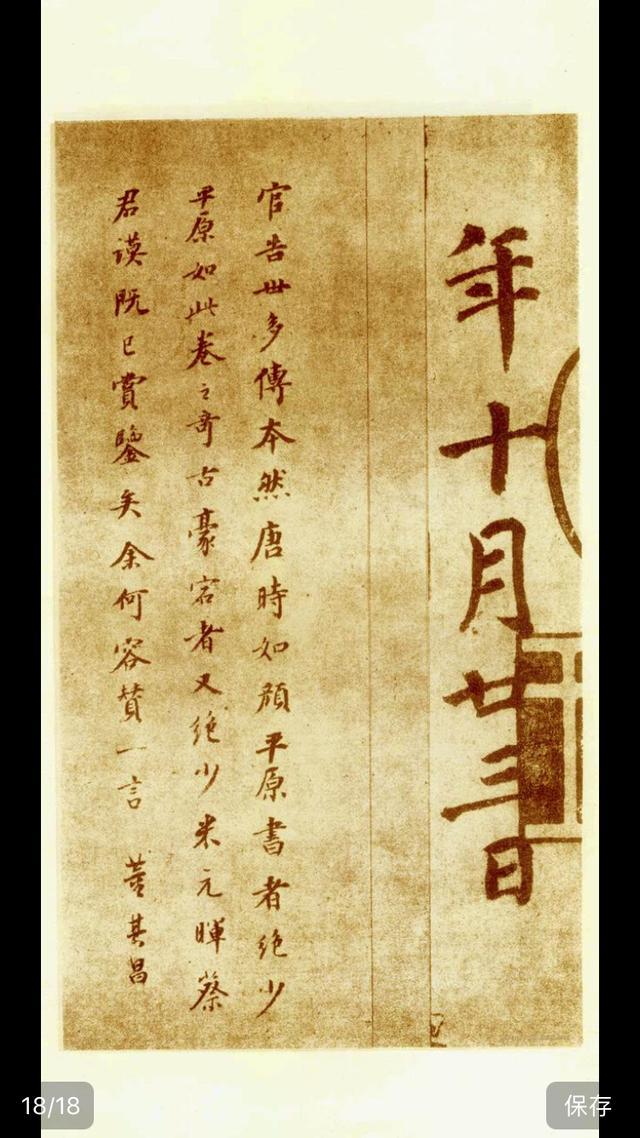 年十月廿三日
官告世多傳本然唐時如顏平原書者絕少
平原如此卷之奇古豪宕者又絕少米元暉蔡
君謨既已賞鑒矣余何容贊一言 董其昌
18/18
保存